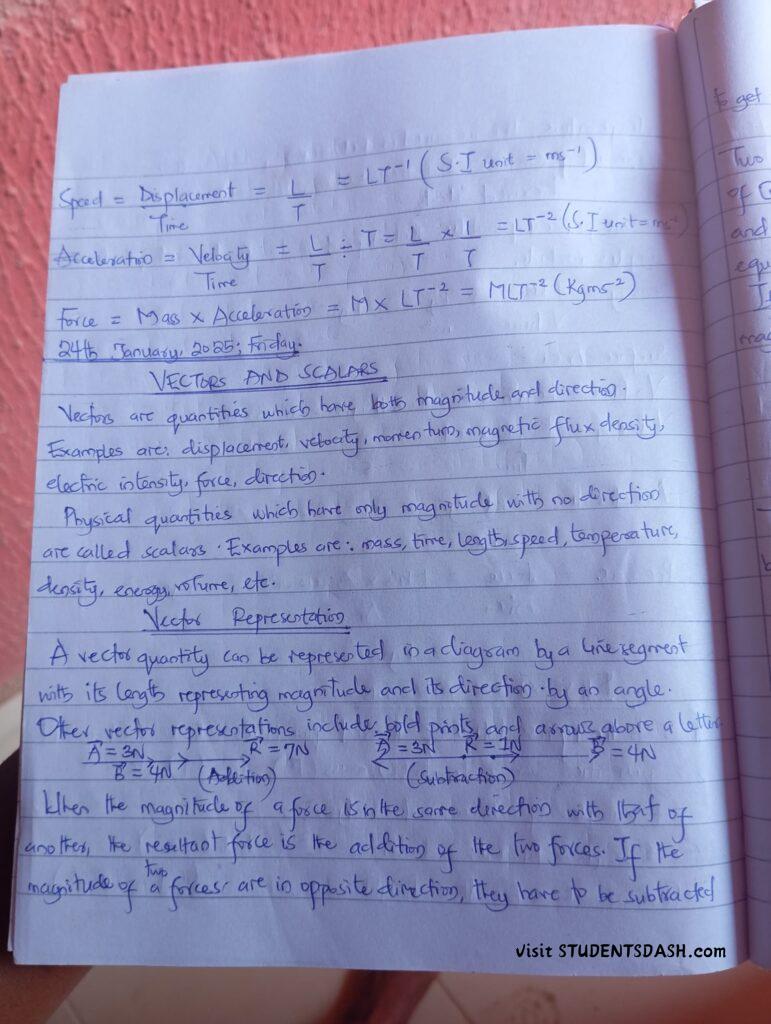 Speed = Displacement/Time = L/T = LT⁻¹ (S.I unit = ms⁻¹)
Acceleration = Velocity/Time = L/T ÷ T = L/T × 1/T = LT⁻² (S.I unit = ms⁻²
Force = Mass × Acceleration = M × LT⁻² = MLT⁻² (Kgms⁻²)
24th January, 2025; Friday.
VECTORS AND SCALARS
Vectors are quantities which have both magnitude and direction.
Examples are: displacement, velocity, momentum, magnetic flux density,
electric intensity, force, direction.
Physical quantities which have only magnitude with no direction
are called scalars. Examples are: mass, time, length, speed, temperature,
density, energy, volume, etc.
Vector Representation
A vector quantity can be represented in a diagram by a line segment
with its length representing magnitude and its direction by an angle.
Other vector representations include bold prints, and arrows above a letter.
A⃗ = 3N R⃗ = 7N A⃗ = 3N R⃗ = 1N B⃗ = 4N
B⃗ = 4N (Addition) (Subtraction)
When the magnitude of a force is in the same direction with that of
another, the resultant force is the addition of the two forces. If the
magnitude of two a forces are in opposite direction, they have to be subtracted
to get
Two
of
and
equ
mag
visit STUDENTSDASH.com